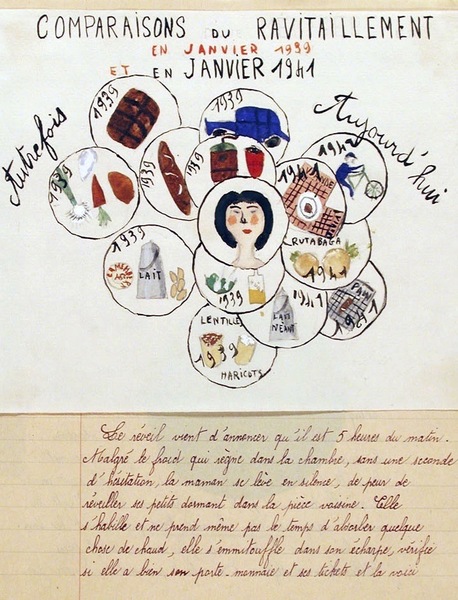 COMPARAISONS DU RAVITAILLEMENT
EN JANVIER 1939
ET EN JANVIER 1941
Autrefois
Aujourd'hui
1939
1939
1942
1939
1939
1939
1941
RUTABAGA
1941
1939
LAIT
1939
1941
LAIT
NÉANT
PAIN
1941
LENTILLES
1939
HARICOTS
Le réveil vient d'annoncer qu'il est 5 heures du matin.
Malgré le froid qui règne dans la chambre, sans une seconde
d'hésitation, la maman se lève en silence, de peur de
réveiller ses petits dormant dans la pièce voisine. Elle
s'habille et ne prend même pas le temps d'absorber quelque
chose de chaud, elle s'emmitouffle dans son écharpe, vérifie
si elle a bien son porte-monnaie et ses tickets et la voici